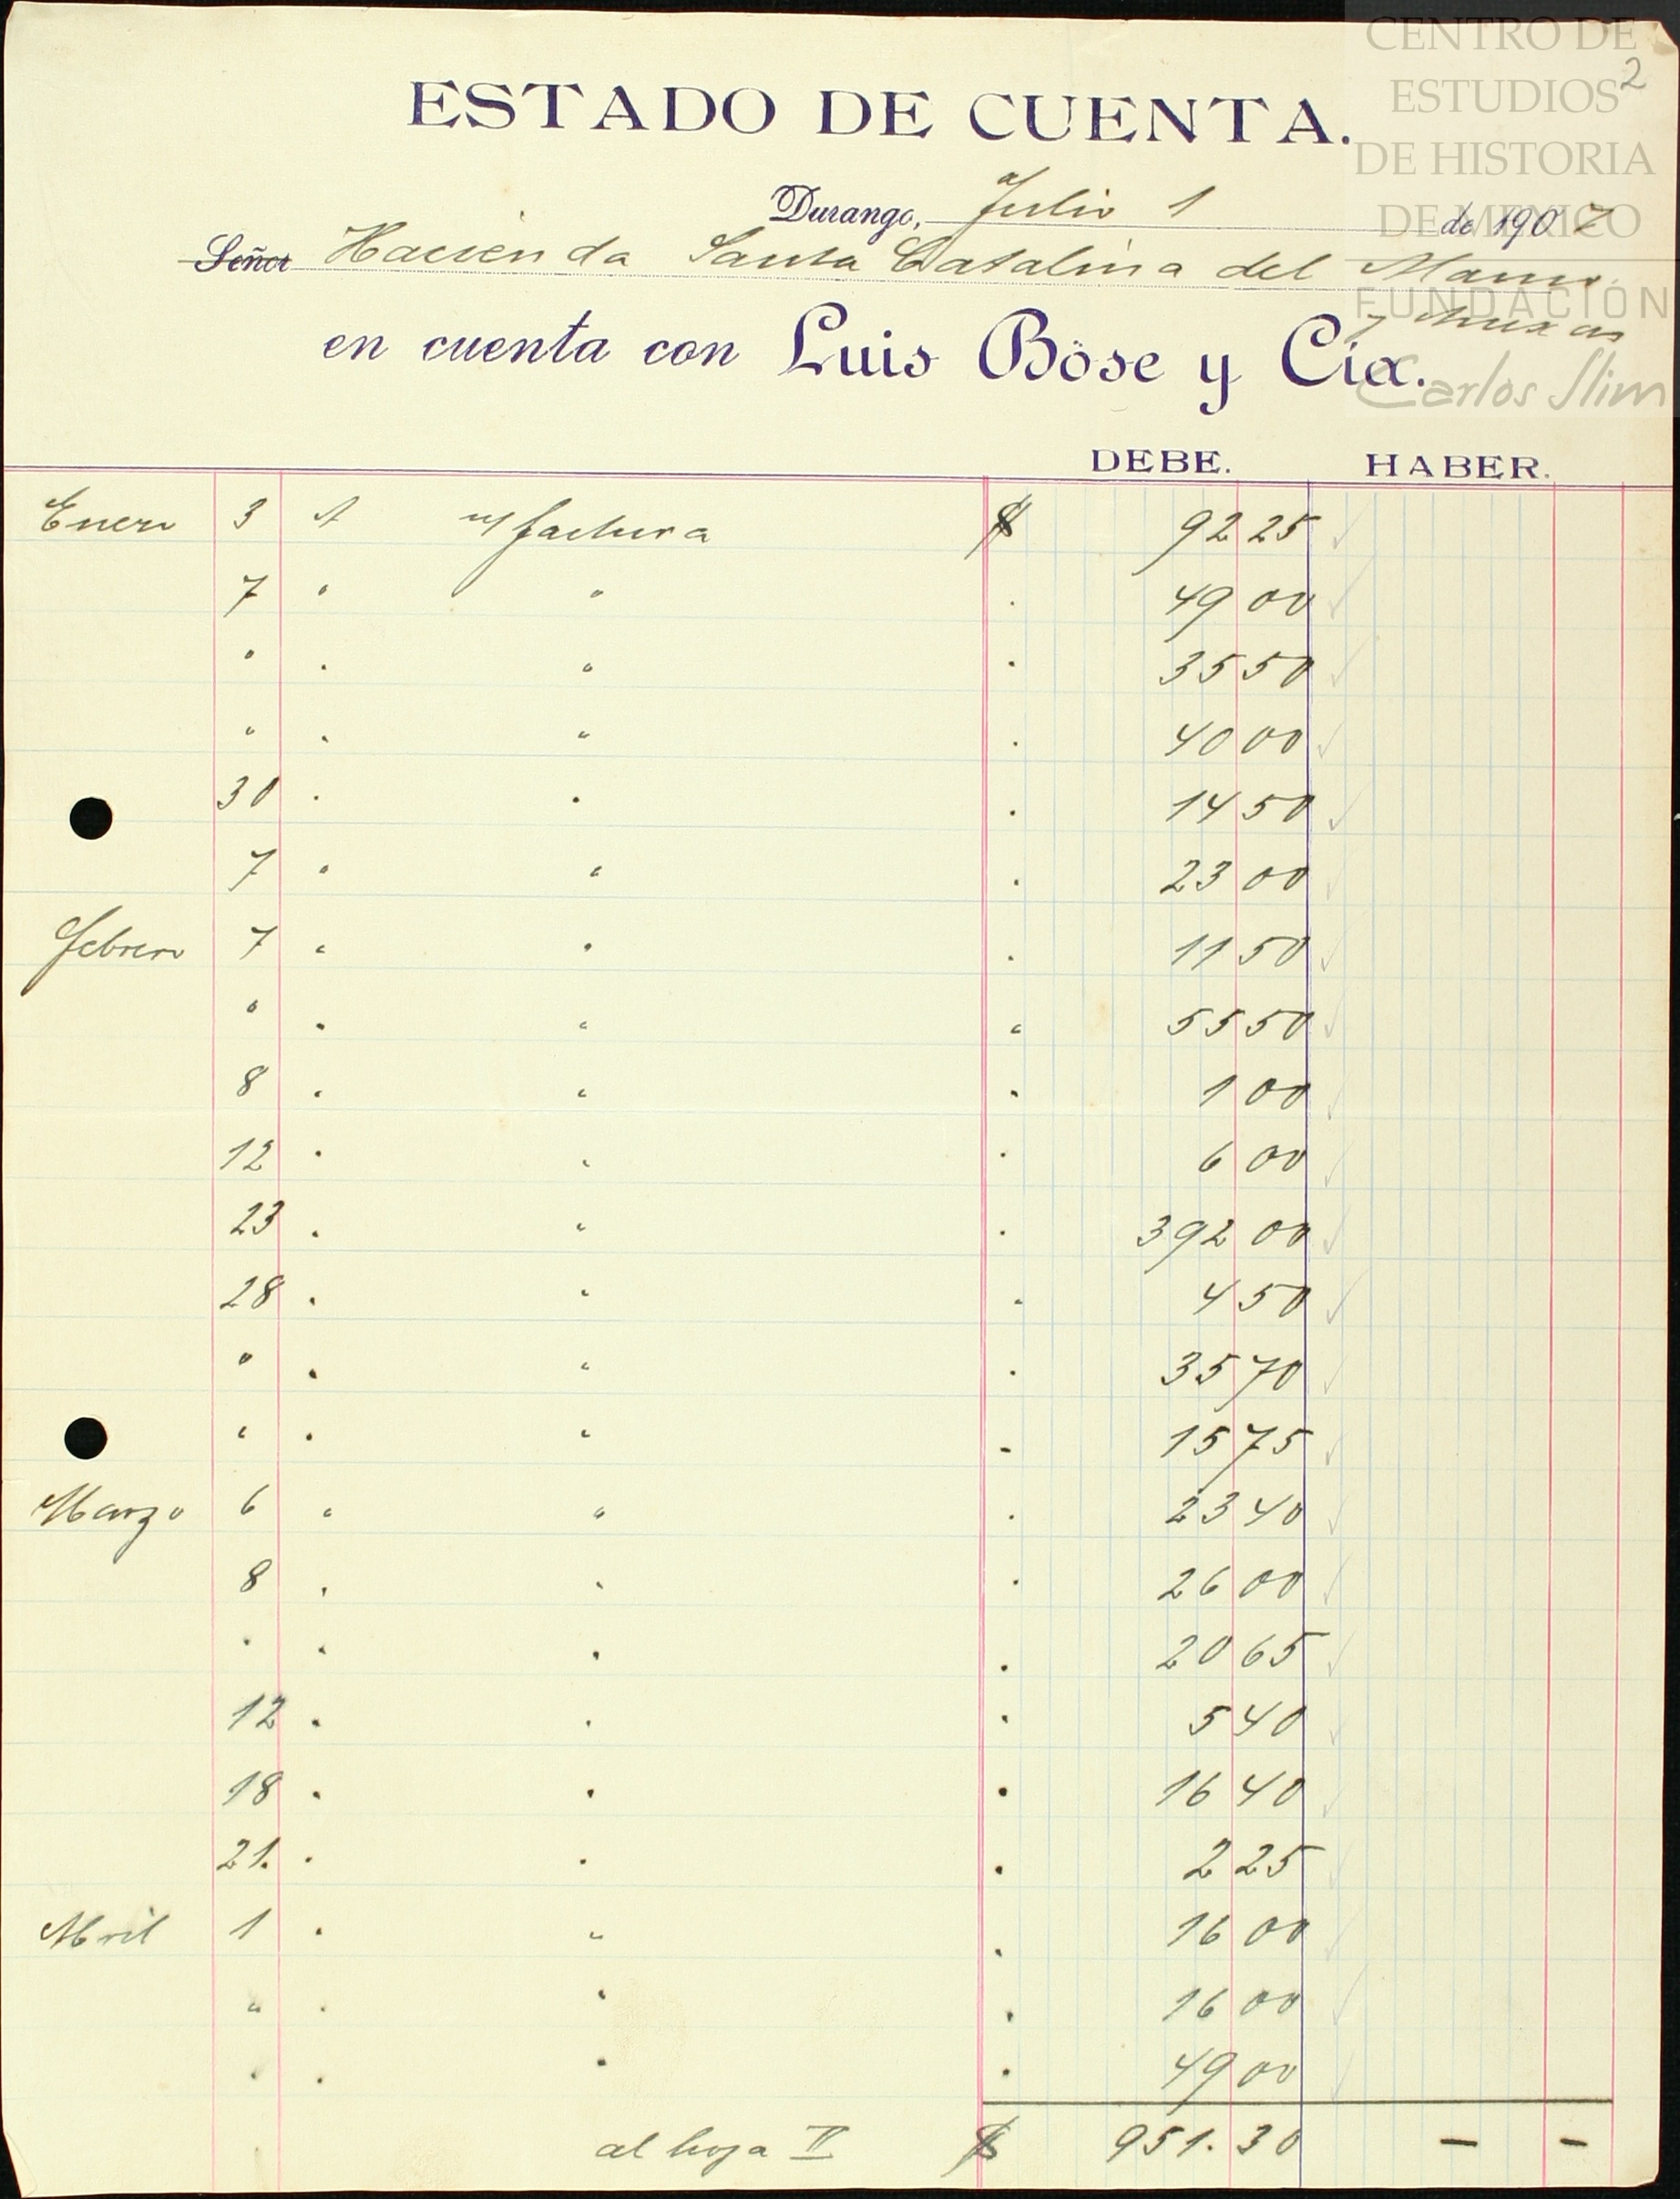 CENTRO DE
ESTUDIOS
DE HISTORIA
DE MEXICO
FUNDACIÓN
Carlos Slim
2
ESTADO DE CUENTA.
Durango, Julio 1 de 1907
Señor Hacienda Santa Catalina del Alamo
y Anexas
en cuenta con Luis Böse y Cia.
DEBE. HABER.
Enero 3 A n/ factura $ 92 25
7 " " " 49 00
" " " " 35 50
" " " " 40 00
30 " " " 14 50
7 " " " 23 00
Febrero 7 " " " 11 50
" " " " 55 50
8 " " " 1 00
12 " " " 6 00
23 " " " 392 00
28 " " " 4 50
" " " " 35 70
" " " " 15 75
Marzo 6 " " " 23 40
8 " " " 26 00
" " " " 20 65
12 " " " 5 40
18 " " " 16 40
21. " " " 2 25
Abril 1 " " " 16 00
" " " " 16 00
" " " " 49 00
al hoja II $ 951.30 — —